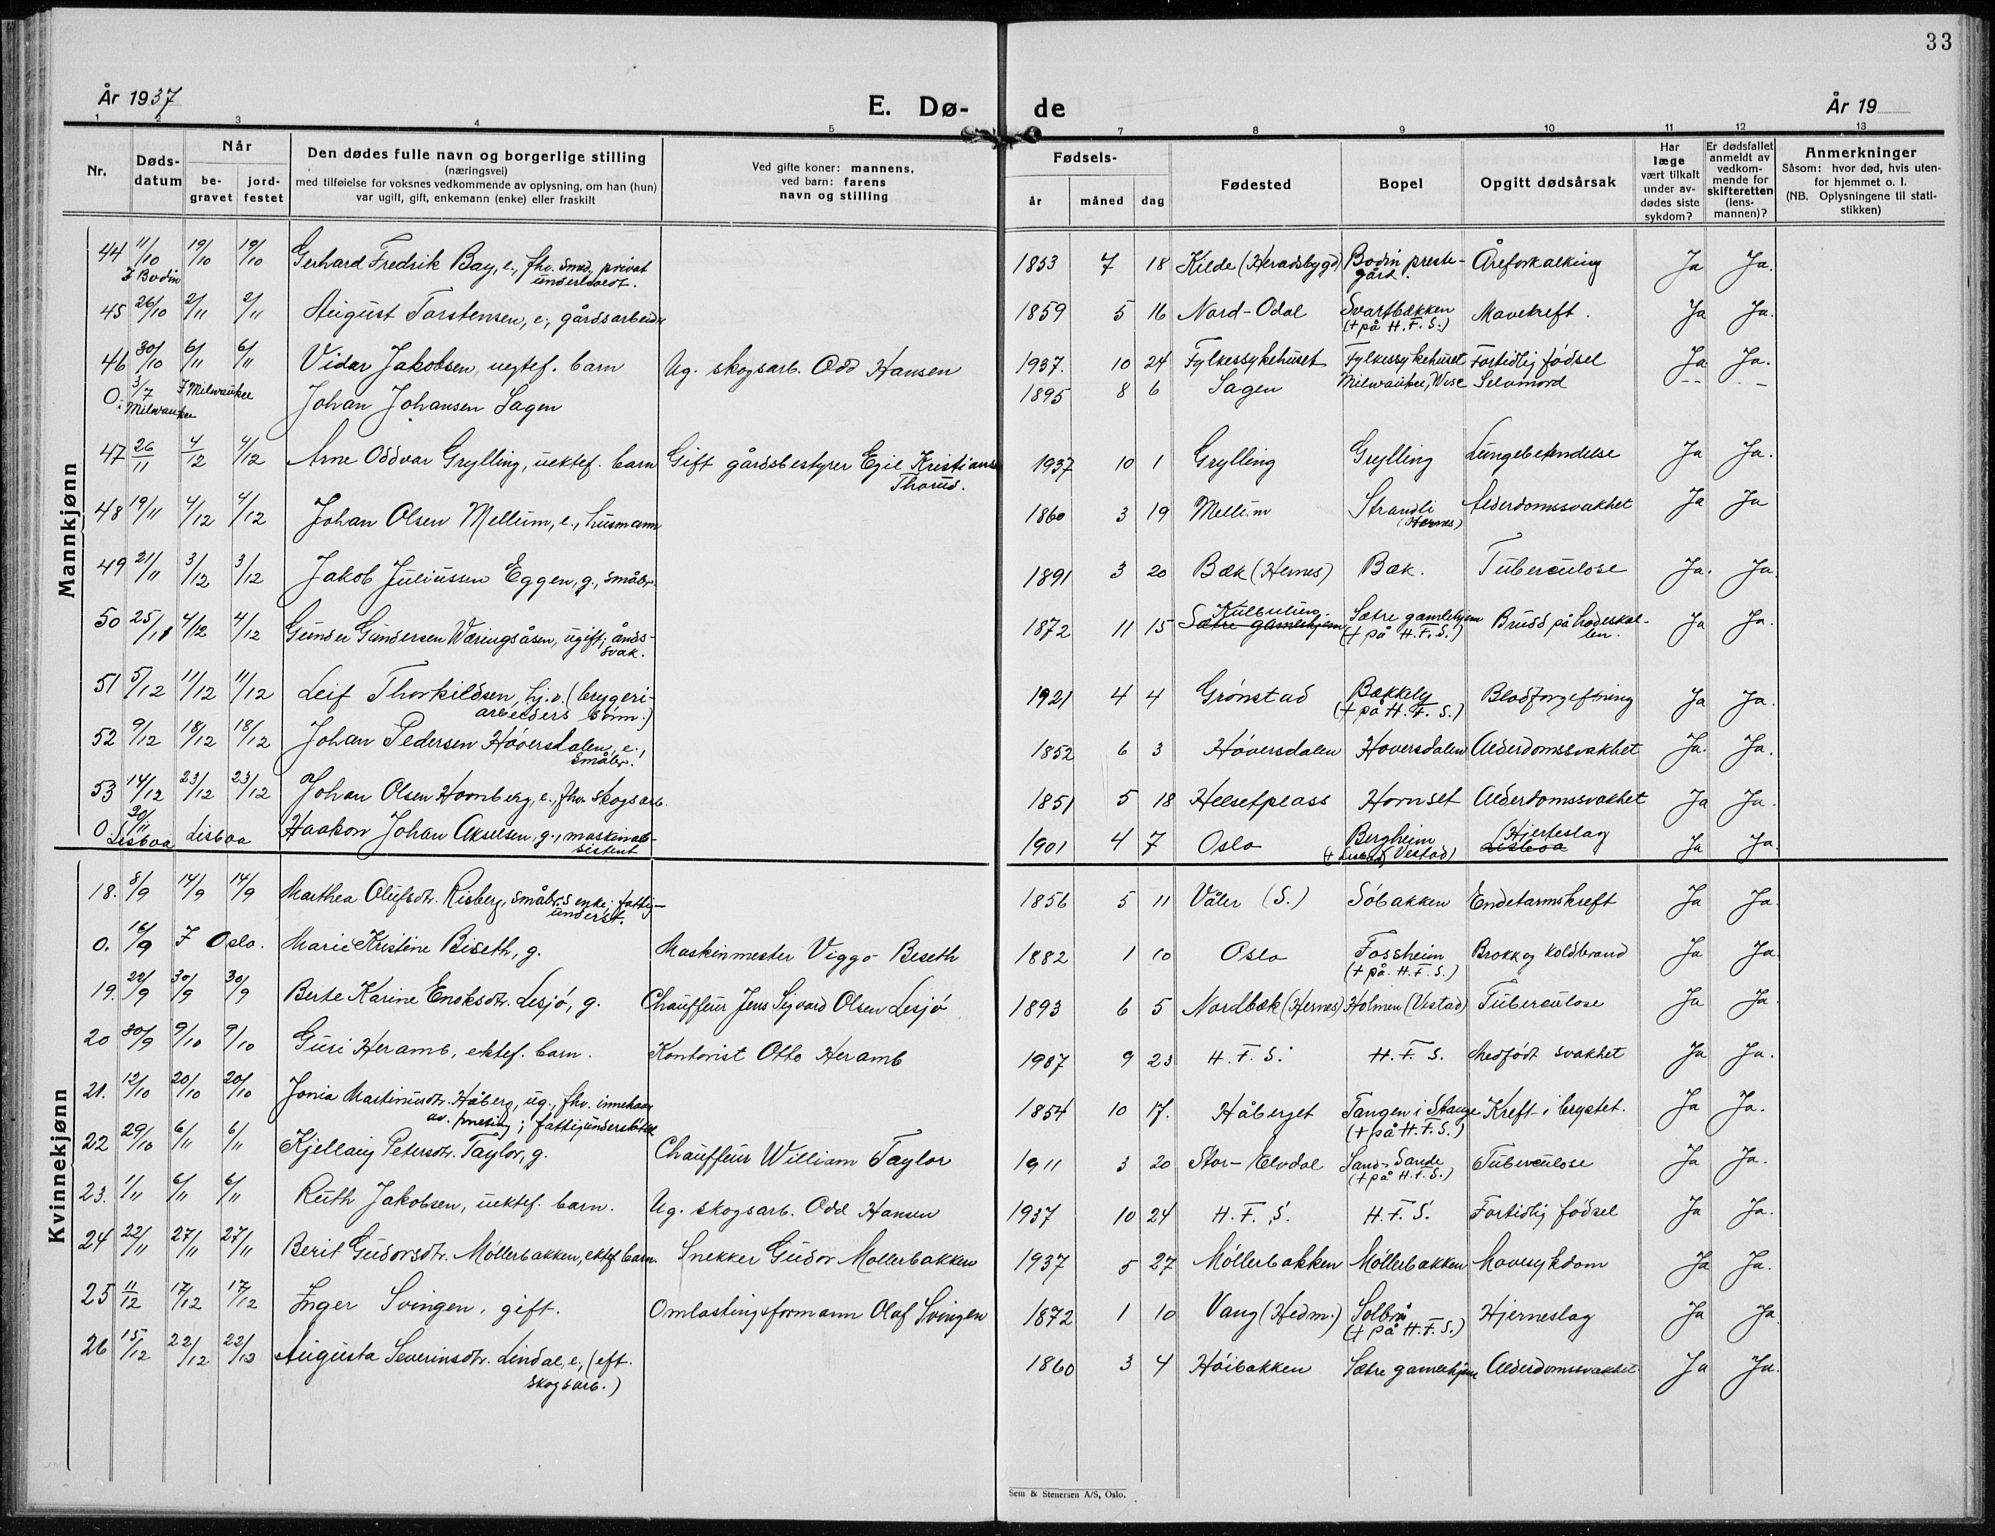 33
År 1937 E. Dø- de År 19
1 2 3 4 5 7 8 9 10 11 12 13
Nr. Døds-datum Når be-gravet jord-festet Den dødes fulle navn og borgerlige stilling (næringsvei) med tilføielse for voksnes vedkommende av oplysning, om han (hun) var ugift, gift, enkemann (enke) eller fraskilt Ved gifte koner: mannens, ved barn: farens navn og stilling Fødsels- år måned dag Fødested Bopel Opgitt dødsårsak Har læge vært tilkalt under av-dødes siste sykdom? Er dødsfallet anmeldt av vedkom-mende for skifteretten (lens-mannen)? Anmerkninger Såsom: hvor død, hvis uten-for hjemmet o. l. (NB. Oplysningene til stati-stikken)
Mannkjønn
44 11/10 I Bodin 19/10 19/10 Gerhard Fredrik Bay, e., fhv. smed, privat understøedt. 1853 7 18 Kilde (Heradsbygd) Bodin preste-gård. Åreforkalking Ja Ja.
45 26/10 2/11 2/11 August Torstensen, e., gårdsarbeider 1859 5 16 Nord-Odal Svartbækken (+ på H.F.S.) Mavekreft. Ja Ja.
46 30/10 6/11 6/11 Vidar Jakobsen, uegtef. barn Ug. skogsarb. Odd Hansen 1937. 10 24 Fylkessykehuset Fylkessykehuset Fortidlig fødsel Ja Ja.
0. 3/7 i Milwaukee I Milwaukee Johan Johansen Sagen 1895 8 6 Sagen Milwaukee, Wisc Selvmord -- --
47 26/11 4/12 4/12 Arne Oddvar Grylling, uektef. barn Gift gårdsbestyrer Egil Kristians Thorud. 1937 10 1 Grylling Grylling Lungebetendelse Ja Ja.
48 19/11 4/12 4/12 Johan Olsen Mellum, e., husmann 1860 3 19 Mellum Strandli (Hernes) Alderdomssvakhet Ja Ja
49 21/11 3/12 3/12 Jakob Juliussen Eggen, g., småbr. 1891 3 20 Bæk (Hernes) Bæk. Tuberculose Ja. Ja.
50 25/11 4/12 4/12 Gunder Gundersen Væringsåsen, ugift; ånds-svak. 1872 11 15 Kulbuling. Sætre gamlehjem Sætre gamlehjem (+ på H.F.S.) Brudd på hodeskal-len. Ja Ja.
51 5/12 11/12 11/12 Leif Thorkildsen, hj.v. (bryggeri-arbeiders sønn.) 1921 4 4 Grønstad Bækkely (+ på H.F.S.) Blodforgiftning Ja Ja.
52 9/12 18/12 18/12 Johan Pedersen Høversdalen, e., småbr. 1852 6 3 Høversdalen Høversdalen Alderdomssvakhet Ja. Ja.
53 14/12 23/12 23/12 Johan Olsen Hornberg, e., fhv. skogsarb. 1851 5 18 Helsetplass Hornset Alderdomssvakhet Ja Ja.
0. 30/11 Lisboa Lisboa Haakon Johan Akselsen, g., maskinas-sistent 1901 4 7 Oslo Bergheim Vestad) Hjerteslag Lisboa Ja Ja.
Kvinnekjønn
18. 8/9 14/9 14/9 Marthea Olufsdtr. Risberg, småbr.s enke; fattig-underst. 1856 5 11 Våler (S.) Søbakken Endetarmskreft Ja Ja.
0. 16/9 I Oslo. Marie Kristine Biseth, g. Maskinmester Viggo Biseth 1882 1 10 Oslo Fossheim (+ på H.F.S.) Brokk og koldbrand Ja Ja.
19. 22/9 30/9 30/9 Berte Karine Enoksdtr. Lesjø, g. Chauffeur Jens Sigvard Olsen Lesjø 1893 6 5 Nordbæk (Hernes) Holmen (Vestad) Tuberculose Ja Ja.
20 30/9 9/10 9/10 Guri Heramb, ektef. barn. Kontorist Otto Heramb 1937 9 23 H.F.S. H.F.S. Medfødt svakhet Ja Ja.
21. 12/10 20/10 20/10 Jonia Martinusdtr. Håberg, ug., fhv. innehaver av forretning; fattigunderstøttet 1854 10 17. Håberget Tangen i Stange (+ på H.F.S.) Kreft i brystet. Ja Ja.
22 29/10 6/11 6/11 Kjellaug Petersdtr. Taylor, g. Chauffeur William Taylor 1911 3 20 Stor-Elvdal Sand, Sande (+ på H.F.S.) Tuberculose Ja Ja.
23. 1/11 6/11 6/11 Ruth Jakobsen, uektef. barn. Ug. skogsarb. Odd Hansen 1937 10 24 H.F.S. H.F.S. Fortidlig fødsel Ja Ja.
24 22/11 27/11 27/11 Berit Gudorsdtr. Møllerbakken, ektef. barn Snekker Gudor Møllerbakken 1937 5 27 Møllerbakken Møllerbakken Mavesykdom Ja Ja.
25 11/12 17/12 17/12 Inger Svingen, gift. Omlastingsformann Olaf Svingen 1872 1 10 Vang (Hedm.) Solbrå (+ på H.F.S.) Hjerneslag Ja Ja
26 15/12 22/12 22/12 Augusta Severinsdtr. Lindal, e., (eft. skogsarb.) 1860 3 4 Høibakken Sætre gamlehjem Alderdomssvakhet. Ja Ja.
Sem & Stenersen A/S, Oslo.